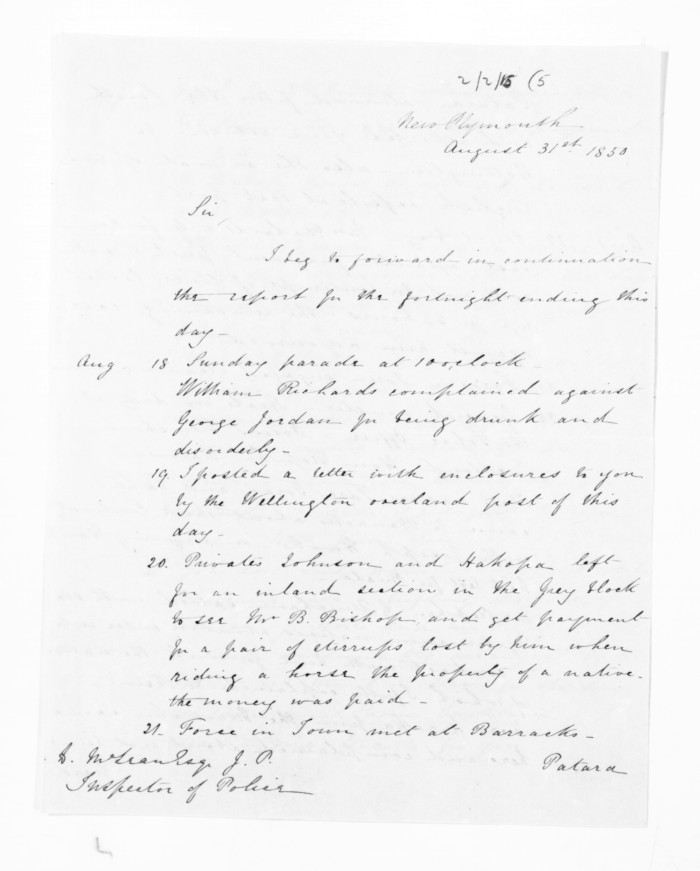 2/2/15 (5
New Plymouth
August 31st 1850.
Sir,
I beg to forward in continuation
the report for the fortnight ending this
day—
Aug. 18 Sunday parade at 10 oclock—
William Richards complained against
George Jordan for being drunk and
disorderly—
19. I posted a letter with enclosures to you
by the Wellington overland post of this
day—
20. Privates Johnson and Hakopa left
for an inland section in the Grey Block
to see Mr B. Bishop and get payment
for a pair of stirrups lost by him when
riding a horse the property of a native.
the money was paid—
21. Force in Town met at Barracks—
Patara
D. McLean Esq J. P.
Inspector of Police